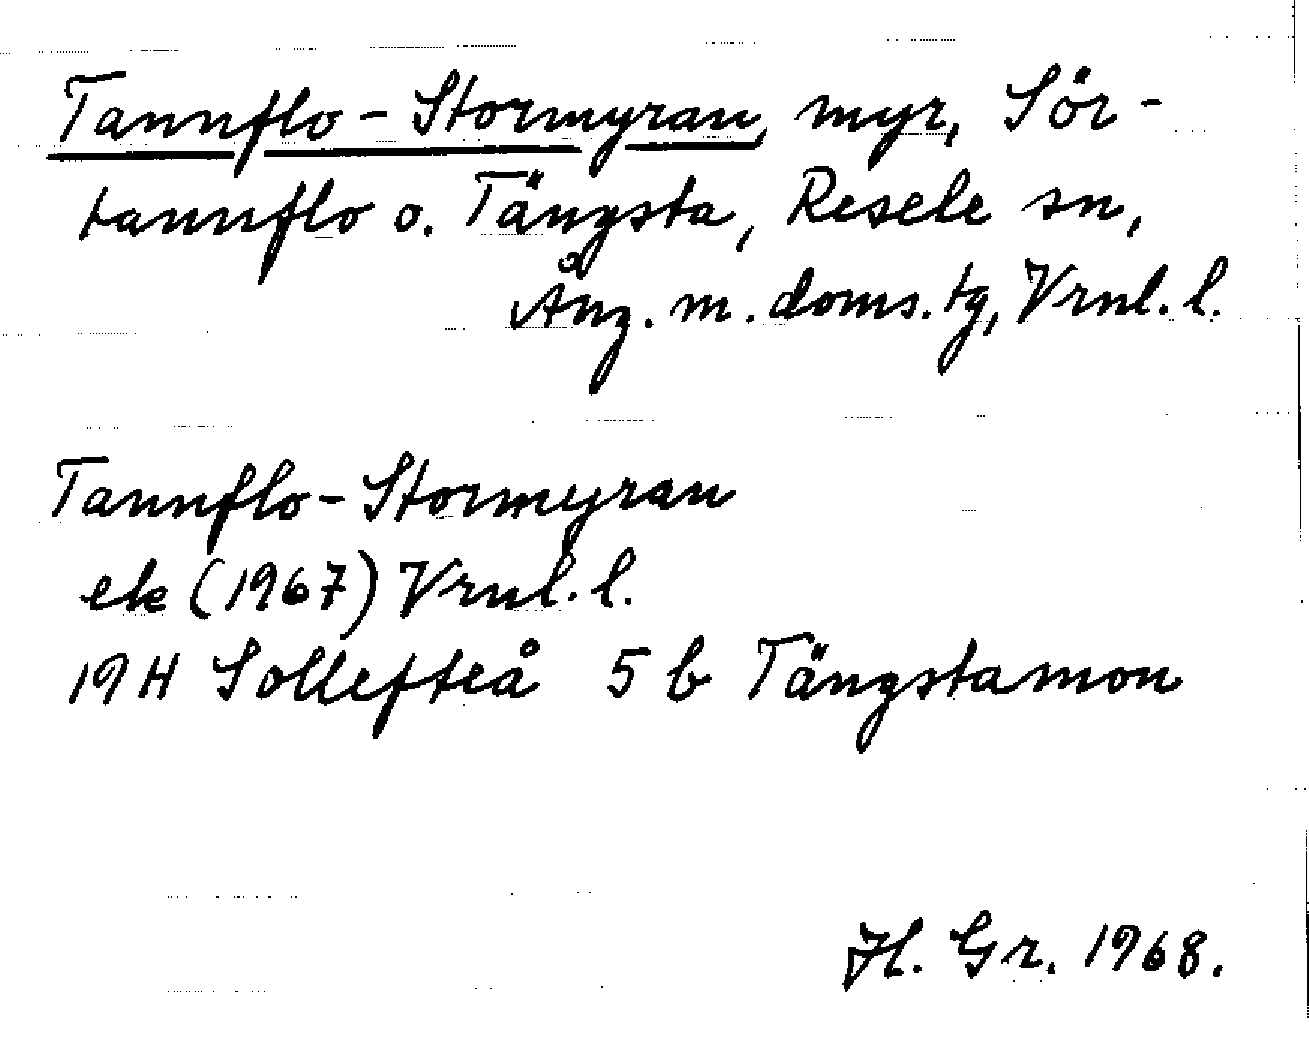 Tannflo-Stormyran, myr, Sör-
tannflo o. Tängsta, Resele sn,
Ång. m. doms.tg, Vrnl. l.
Tannflo-Stormyran
ek (1967) Vrnl. l.
19 H Sollefteå 5 b Tängstamon
Hl. Gr. 1968.